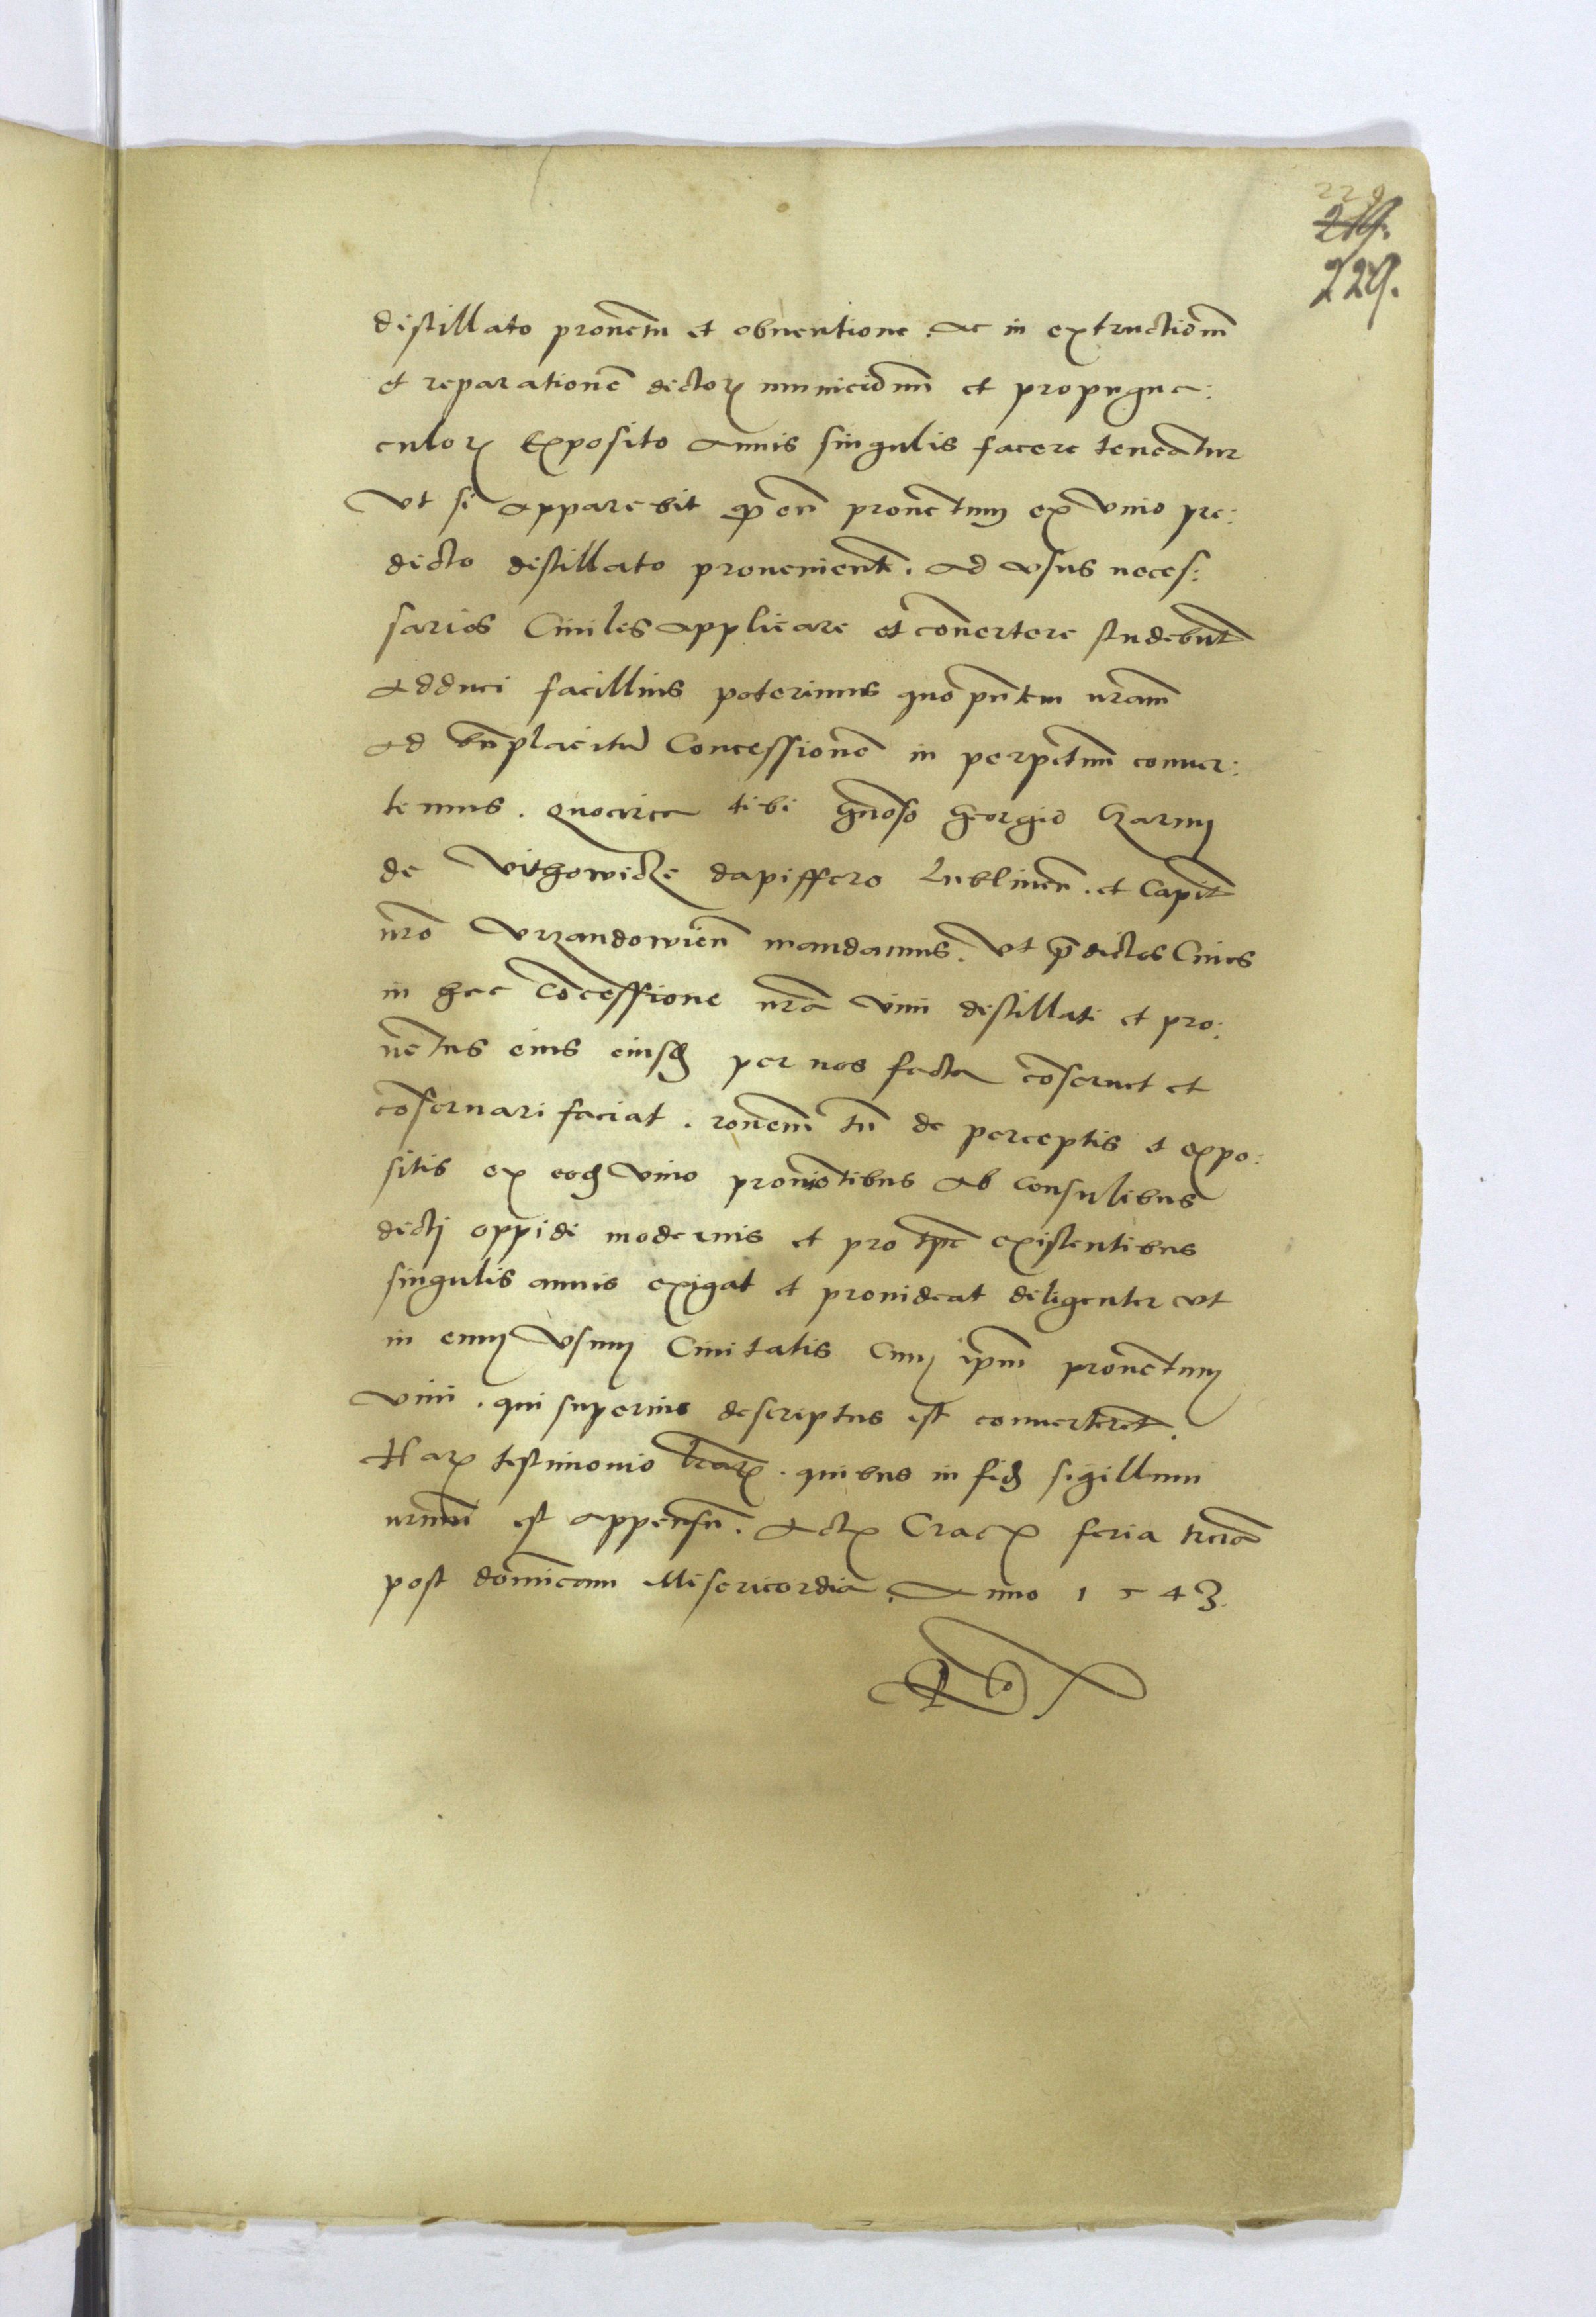 229
219.
229.
distillato proventu et obventione. Ac in extructiom̄
et reparationē dictorꝝ municiom̄ et propugna:
culorꝝ Exposito Annis singulis facere teneātur
Vt si Apparebit ꝙ eū proventum ex vino pre:
dicto distillato provenient̄. Ad vsus neces:
sarios Civiles Applicare et cōvertere studebūt
Adduci facillius poterimus quo pn̄tem nr̄am
Ad bn̄placitū Concessionē in perpetuū conver:
temus. Quocirca tibi gn̄oso Georgio
de dapiffero Lublinen̄. et Capit̄
nr̄o Vrzandowien̄ mandamus. Vt p̄dictos Cives
in hac Cōcessione nr̄a vini distillati et pro:
ventus eius eiusdē per nos facta cōservet et
cōservari faciat. ronem̄ tn̄ de perceptis et expo:
sitis ex eodē vino provīentibus Ab consulibus
dicti oppidi modernis et pro tpē existentibus
singulis annis exigat et provideat diligenter vt
in eum vsum Civitatis Cum ip̄m proventum
vini. qui superius descriptus est converteret̄.
Harꝝ testimonio lr̄arꝝ. quibus in fidē sigillum
nrūm est Appensū. Actꝝ Cracꝝ feria terciā
post dōminicam Misericordiā. Anno 1543.